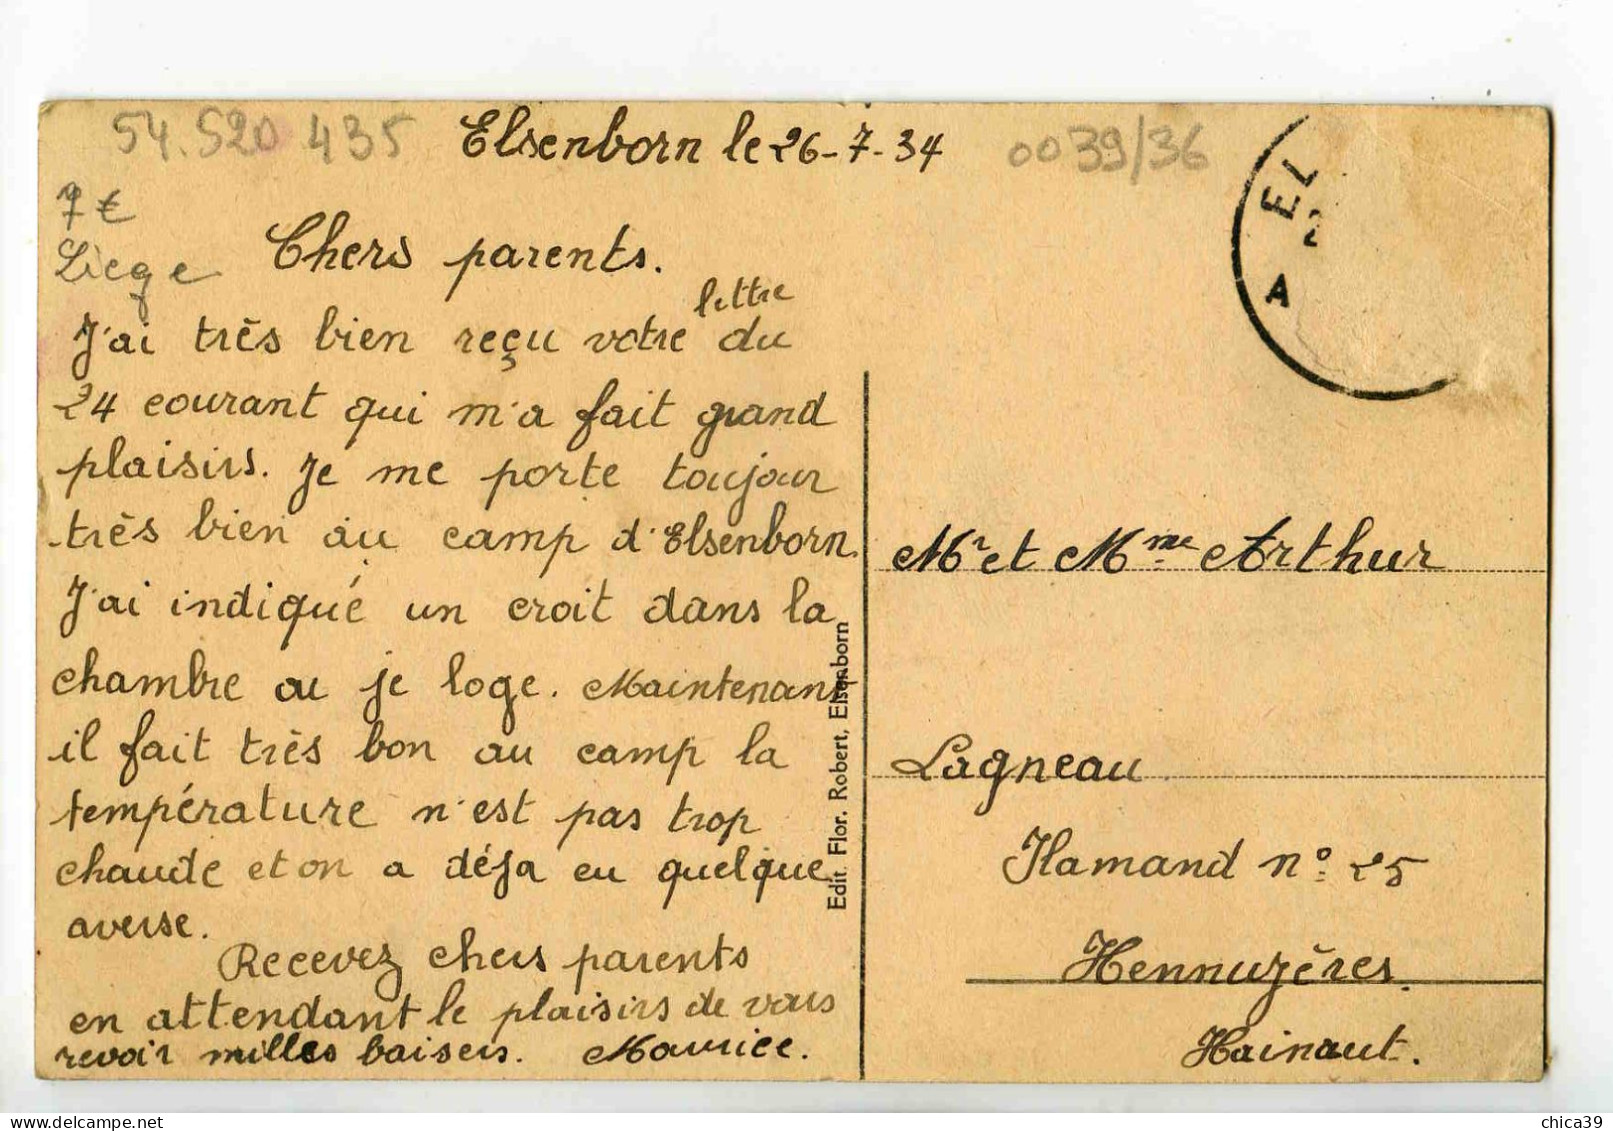 54.520 435
Elsenborn le 26-7-34
0039/36
7 €
Liège
Chers parents.
lettre
J'ai très bien reçu votre du
24 courant qui m'a fait grand
plaisirs. Je me porte toujour
très bien au camp d'Elsenborn.
J'ai indiqué un croit dans la
chambre ou je loge. Maintenant
il fait très bon au camp la
température n'est pas trop
chaude et on a déja eu quelque
averse.
Recevez chers parents
en attendant le plaisirs de vous
revoir milles baisers. Maurice.
Edit. Flor. Robert, Elsenborn
EL
2
A
Mr et Mme Arthur
Lagneau
Hamand n° 25
Hennuyères.
Hainaut.
chica39